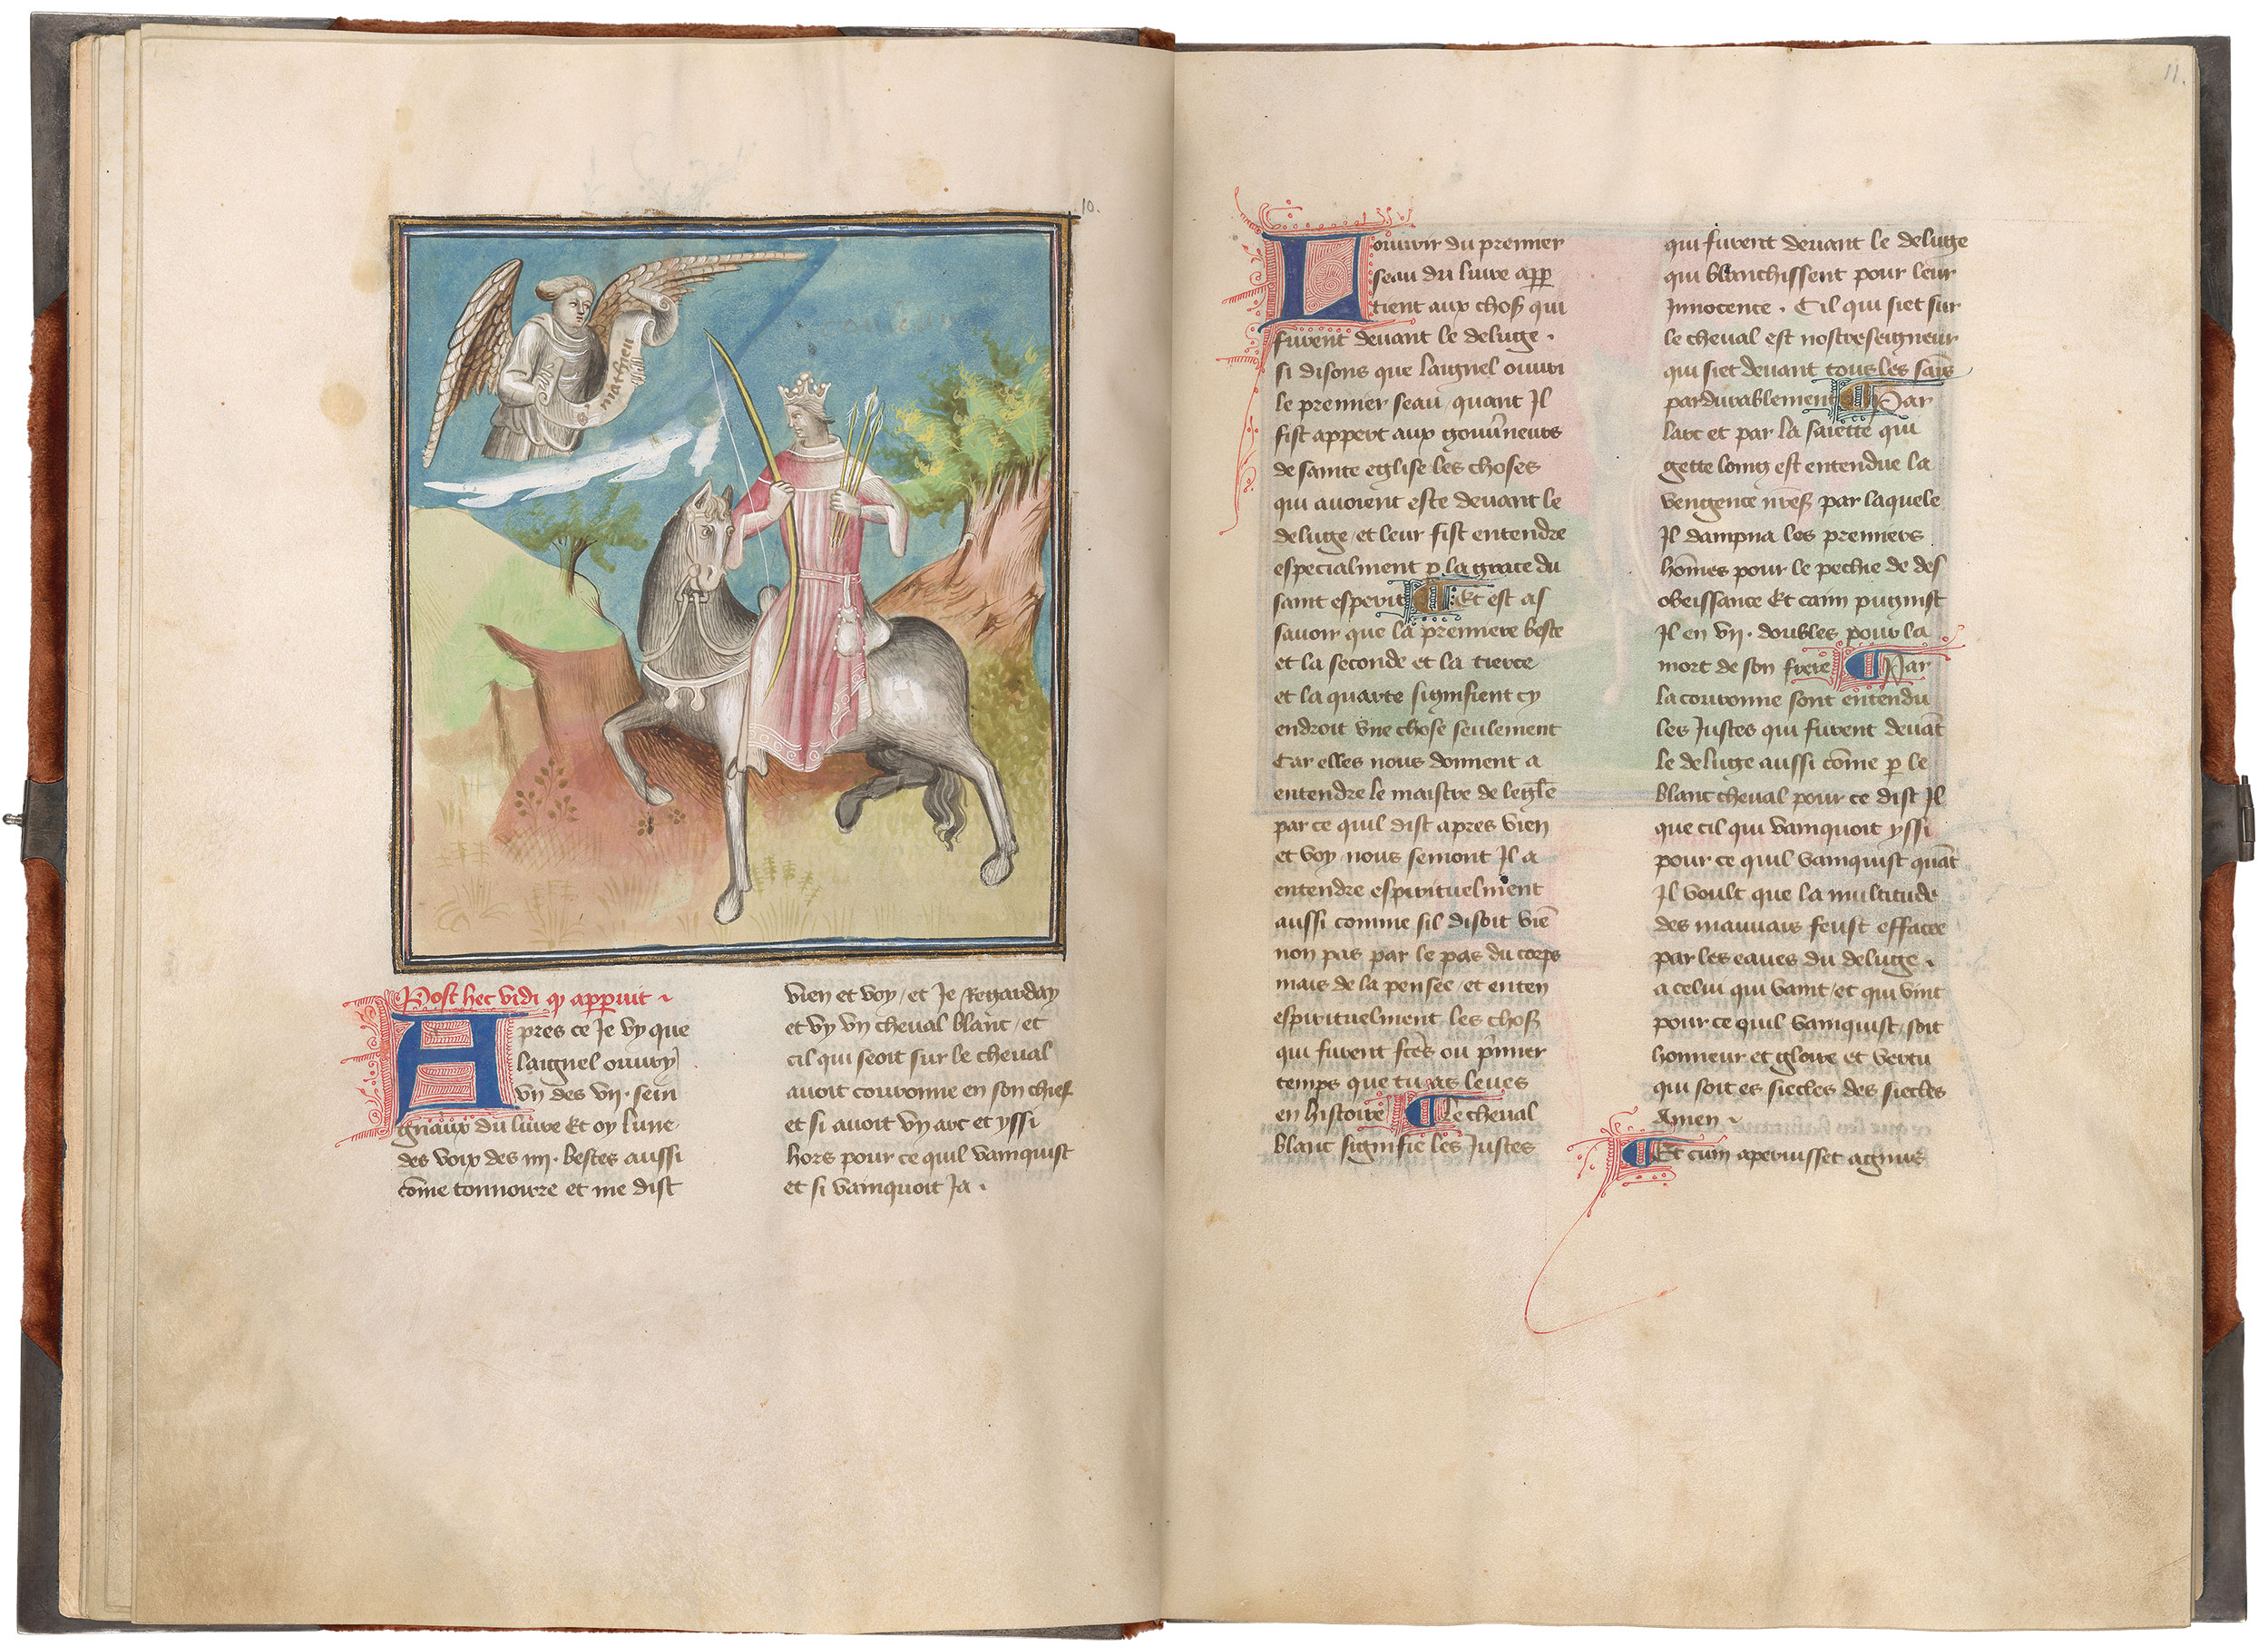 10.
matheu
Post hec vidi qz apperuit
Apres ce Je vy que
laignel ouvry
vn des vij. sein
gnaux du livre Et oy lune
des voix des iiij. bestes aussi
come tonnoirre et me dist
vien et voy / et Je Regarday
et vy vn cheval blanc / et
cil qui seoit sur le cheval
avoit couronne en son chief
et si avoit vn arc et yssi
hors pour ce quil vainquist
et si vainquoit Ja .
11.
Louvrir du premier
seau du livre app
tient aux choses qui
furent devant le deluge .
si disons que laignel ouvri
le premier seau / quant Il
fist appert aux gouverneurs
de sainte eglise les choses
qui avoient este devant le
deluge / et leur fist entendre
especialment p la grace du
saint esperit Et est as
savoir que la premiere beste
et la seconde et la tierce
et la quarte signifient cy
endroit vne chose seulement
Car elles nous donnent a
entendre le maistre de legle
par ce quil dist apres vien
et voy nous semont Il a
entendre espirituelment
aussi comme sil disoit vie
non pas par le pas du corps
mais de la pensee / et enten
espirituelment les choses
qui furent fces ou pmier
temps que tu as leues
en histoire Le cheval
blanc signifie les Justes
qui furent devant le deluge
qui blanchissent pour leur
Innocence . Cil qui siet sur
le cheval est nostreseigneur
qui siet devant tous les sais
pardurablement Par
larc et par la saiette qui
gette loing est entendue la
vengence nres par laquele
Il dampna les premiers
homes pour le pechie de des
obeissance Et cain pugnist
Il en vij . doubles pour la
mort de son frere Par
la couronne sont entendu
les Justes qui furent devat
le deluge aussi come p le
blanc cheval pour ce dist Il
que cil qui vainquoit yssi
pour ce quil vainquist quat
Il voult que la multitude
des mauvais feust effacee
par les eaues du deluge .
a celui qui vaint / et qui vint
pour ce quil vainquist / soit
honneur et gloire et vertu
qui soit es siecles des siecles
Amen
Et cum aperuisset agnus